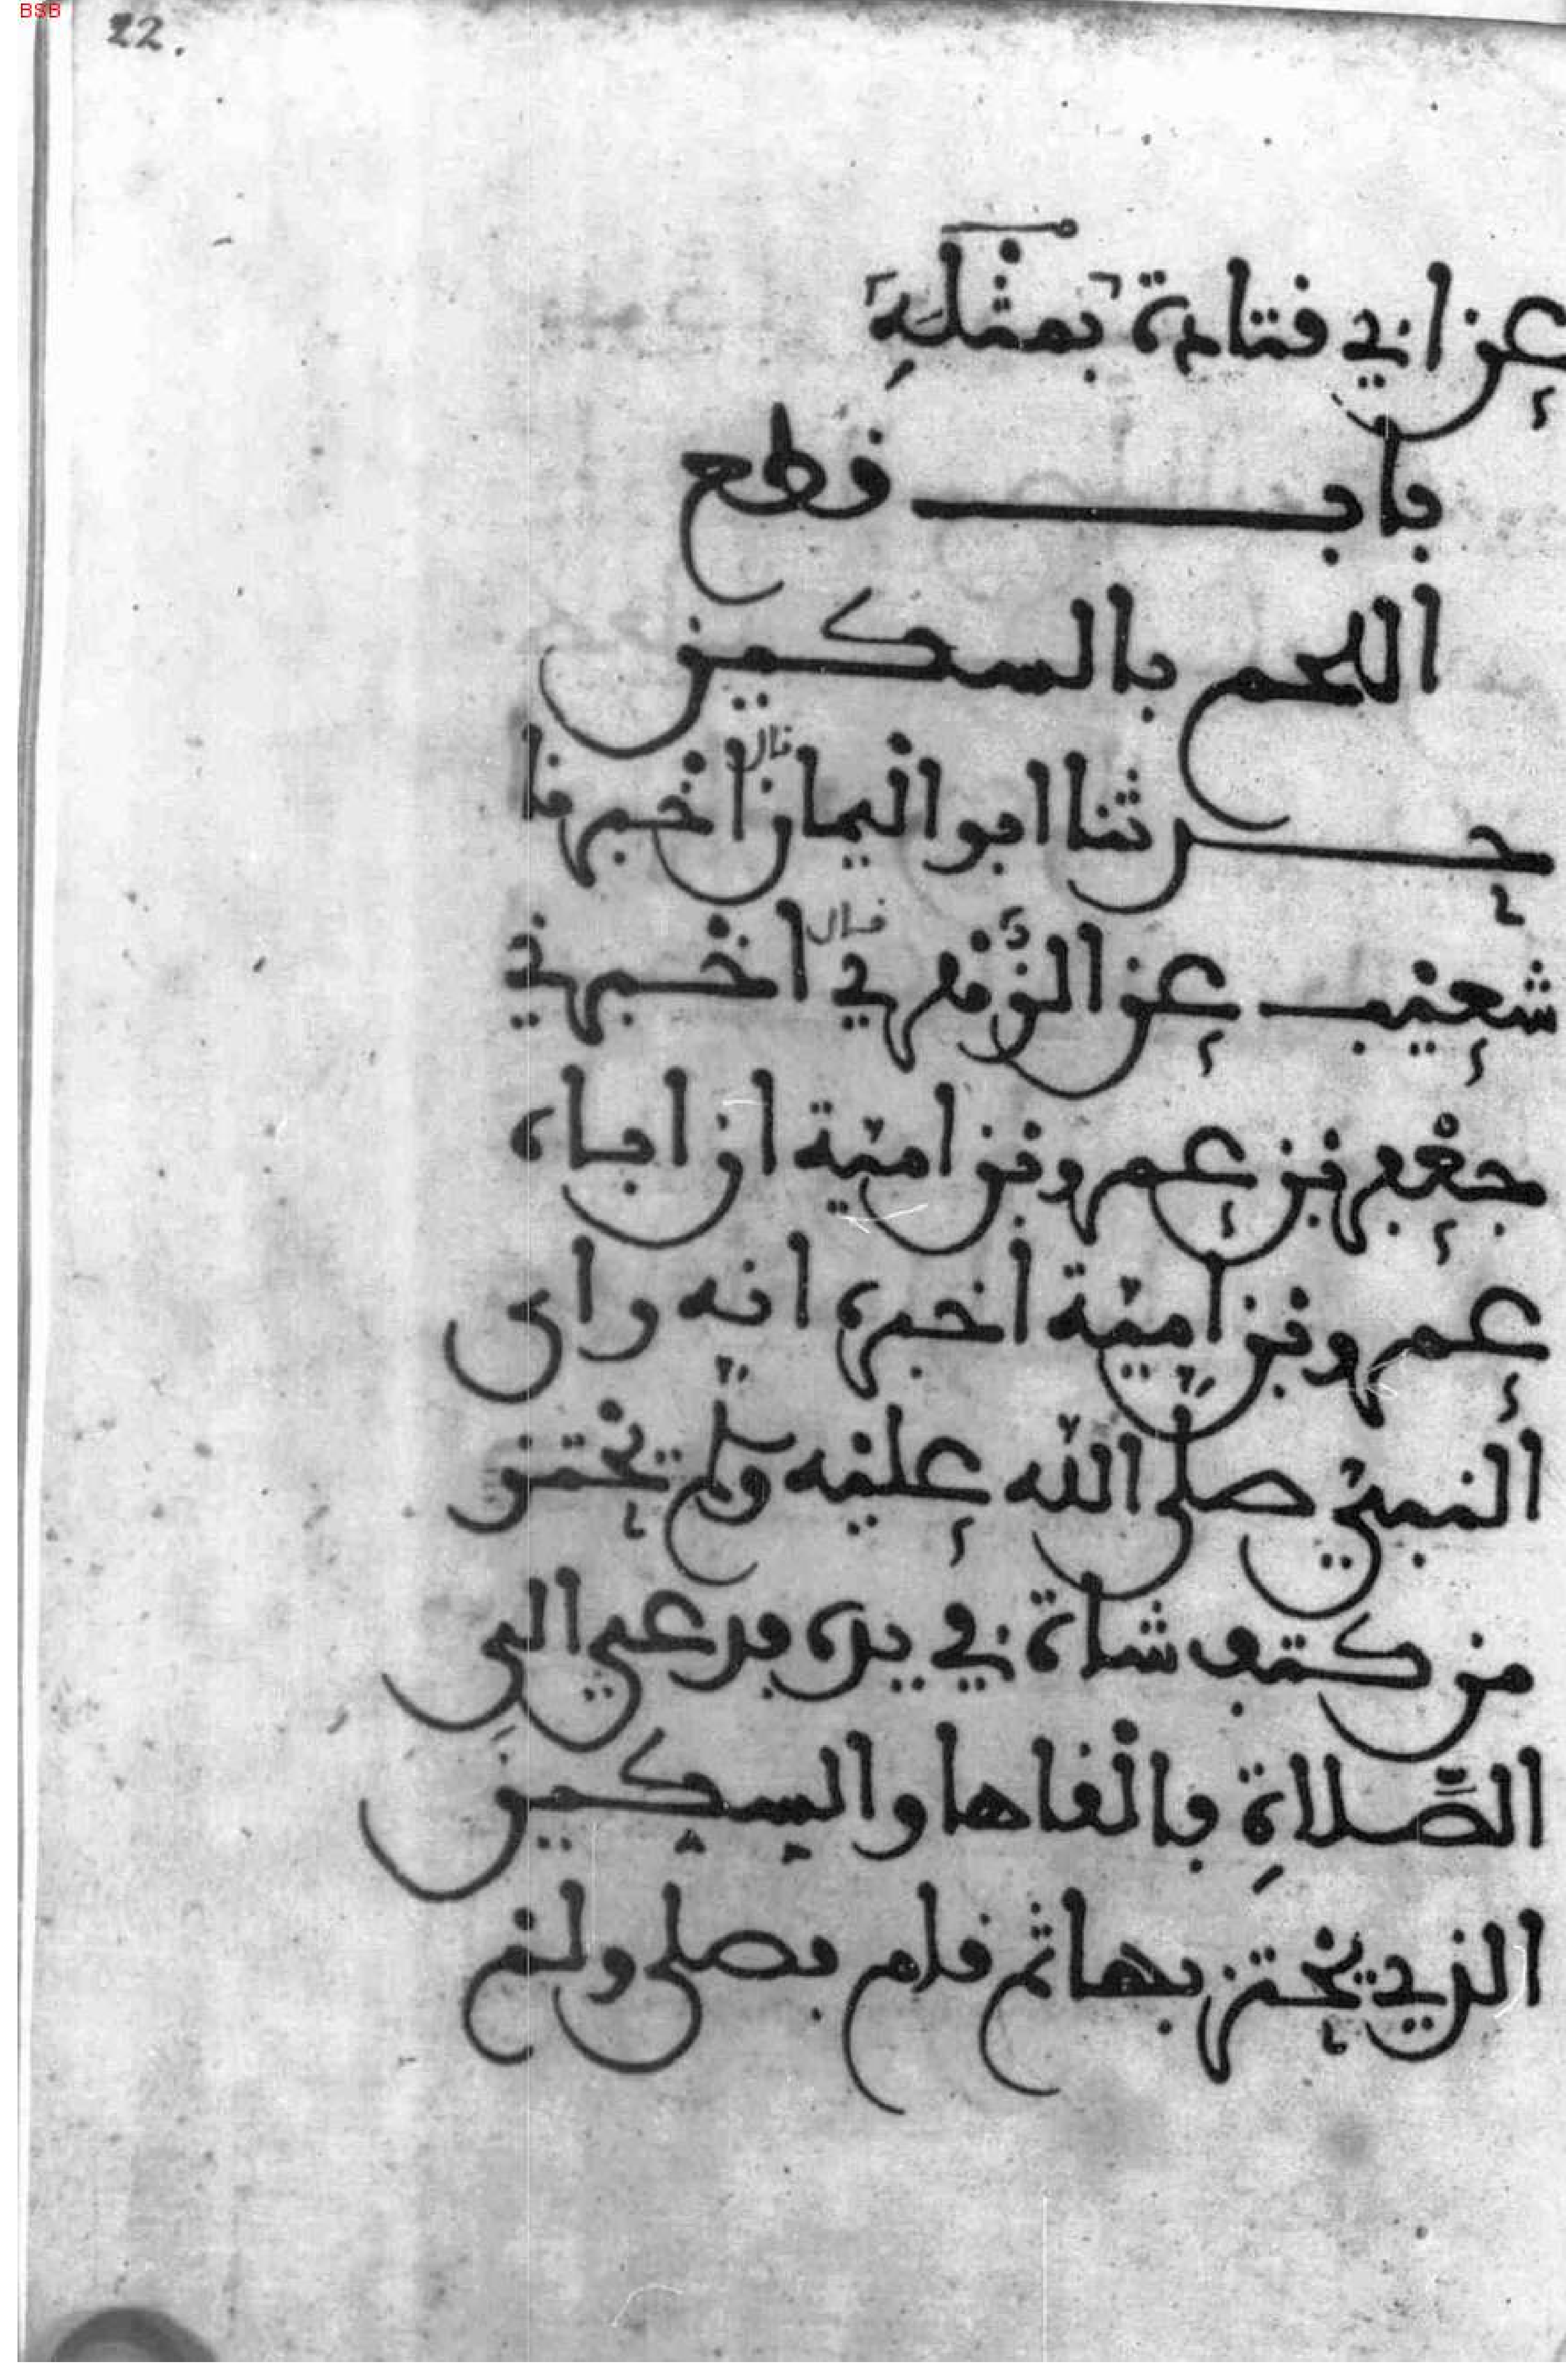 BSB
22.
عن ابي قتادة بمثله
باب قطع
اللحم بالسكين
حدثنا ابو اليمان قال اخبرنا
شعيب عن الزهري قال اخبرني
جعفر بن عمرو بن امية ان اباه
عمرو بن امية اخبره انه راى
النبي صلى الله عليه وسلم يحتز
من كتف شاة في يده فدعي الى
الصلاة فالقاها والسكين
الذي يحتز بها ثم قام فصلى ولم